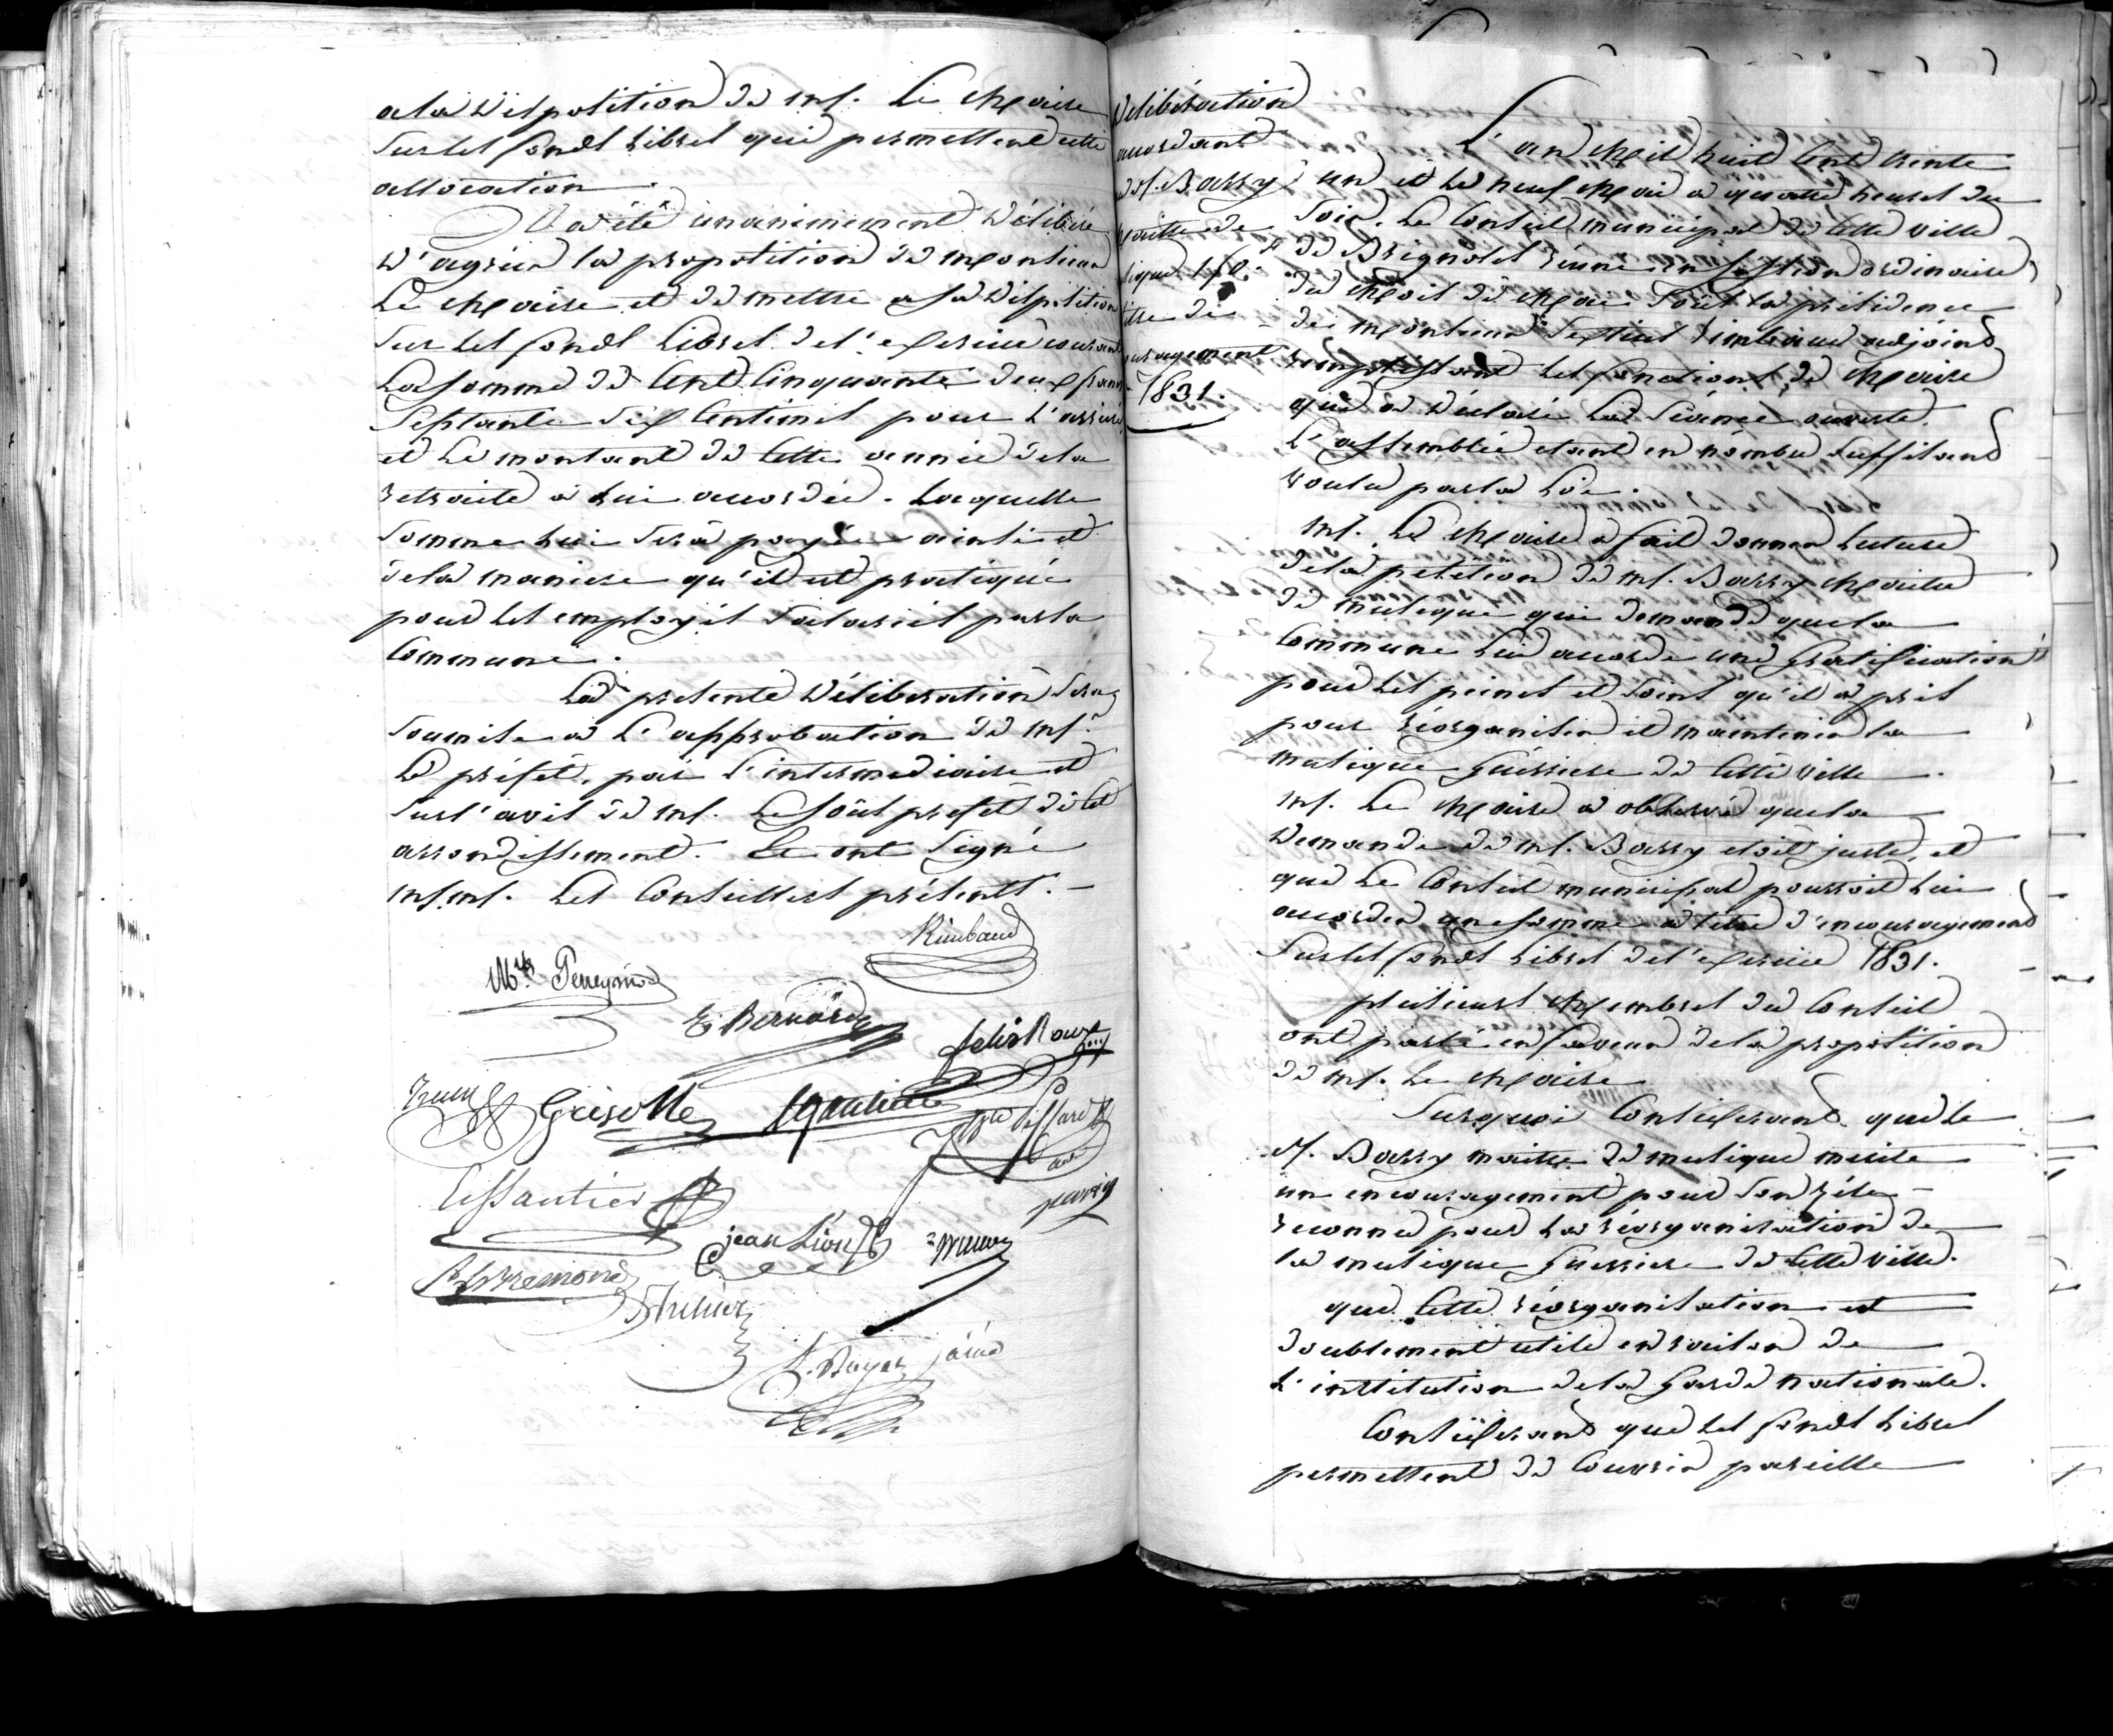 a la disposition de mr. le Maire
sur les fonds libres qui permettent cette
allocation.
Il a été unanimement délibéré
d'agréer la proposition de Monsieur
le Maire et de mettre a sa disposition
sur les fonds libres de l'exercice courant
la somme de cent cinquante deux francs
septante six centimes pour l'arriéré
et le montant de cette année de la
retraite a lui accordée. Laquelle
somme lui sera payée ainsi et
de la maniere qu'il est pratiqué
pour les employés salariés par la
Commune.
La présente délibération sera
soumise a l'approbation de mr.
le préfet, par l'intermediaire et
sur l'avis de mr. le sous préfet de cet
arrondissement. Et ont signé
mr.mr. les Conseillers présents. —
Rimbaud
E. Bernard
felix Roux
Grisolle
Lissautier
jean Lion
Délibération
accordant
a Mr. Barry
maitre de
titre de
1831.
L'an Mil huit cent trente
un et le neuf Mai a quatre heures du
soir. Le Conseil municipal de cette ville
de Brignoles réuni en session ordinaire
du Mois de Mai sous la présidence
de Monsieur Rimbaud adjoint
remplissant les fonctions de Maire
qui a déclaré la séance ouverte.
L'assemblée etant en nombre suffisant
voulu par la loi.
Mr. Le Maire a fait donner lecture
de la petition de mr. Barry Maitre
de musique qui demande que la
Commune lui accorde une gratification
pour les peines et soins qu'il a pris
pour réorganiser et maintenir la
musique guerriere de cette ville.
Mr. Le Maire a observé que la
demande de mr. Barry etoit juste, et
que le Conseil municipal pourroit lui
accorder une somme a titre d'encouragement
sur les fonds libres de l'exercice 1831.
plusieurs Membres du Conseil
ont parlé en faveur de la proposition
de mr. le Maire
Surquoi Considerant que le
Sr. Barry maitre de musique merite
un encouragement pour son zéle
reconnu pour la réorganisation de
la musique guerriere de cette ville.
que cette réorganisation est
doublement utile en raison de
l'institution de la garde nationale.
Considerant que les fonds libres
permettent de couvrir pareille